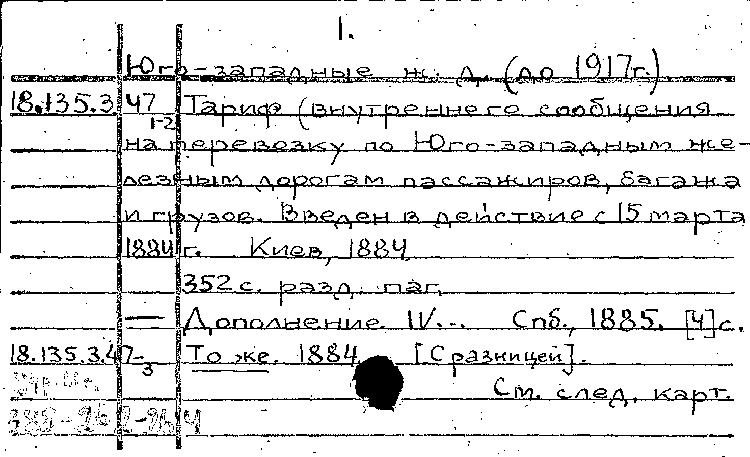 1.
Юго-западные ж. д. (до 1917г.)
18.135.3.47 1-2 Тариф (внутреннего сообщения
на перевозку по Юго-западным же-
лезным дорогам пассажиров, багажа
и грузов. Введен в действие с 15 марта
1884 г. Киев, 1884.
352 с. разд. паг.
— Дополнение IV... Спб., 1885. [4] с.
18.135.3.47-3 То же. 1884. [С разницей].
См. след. карт.